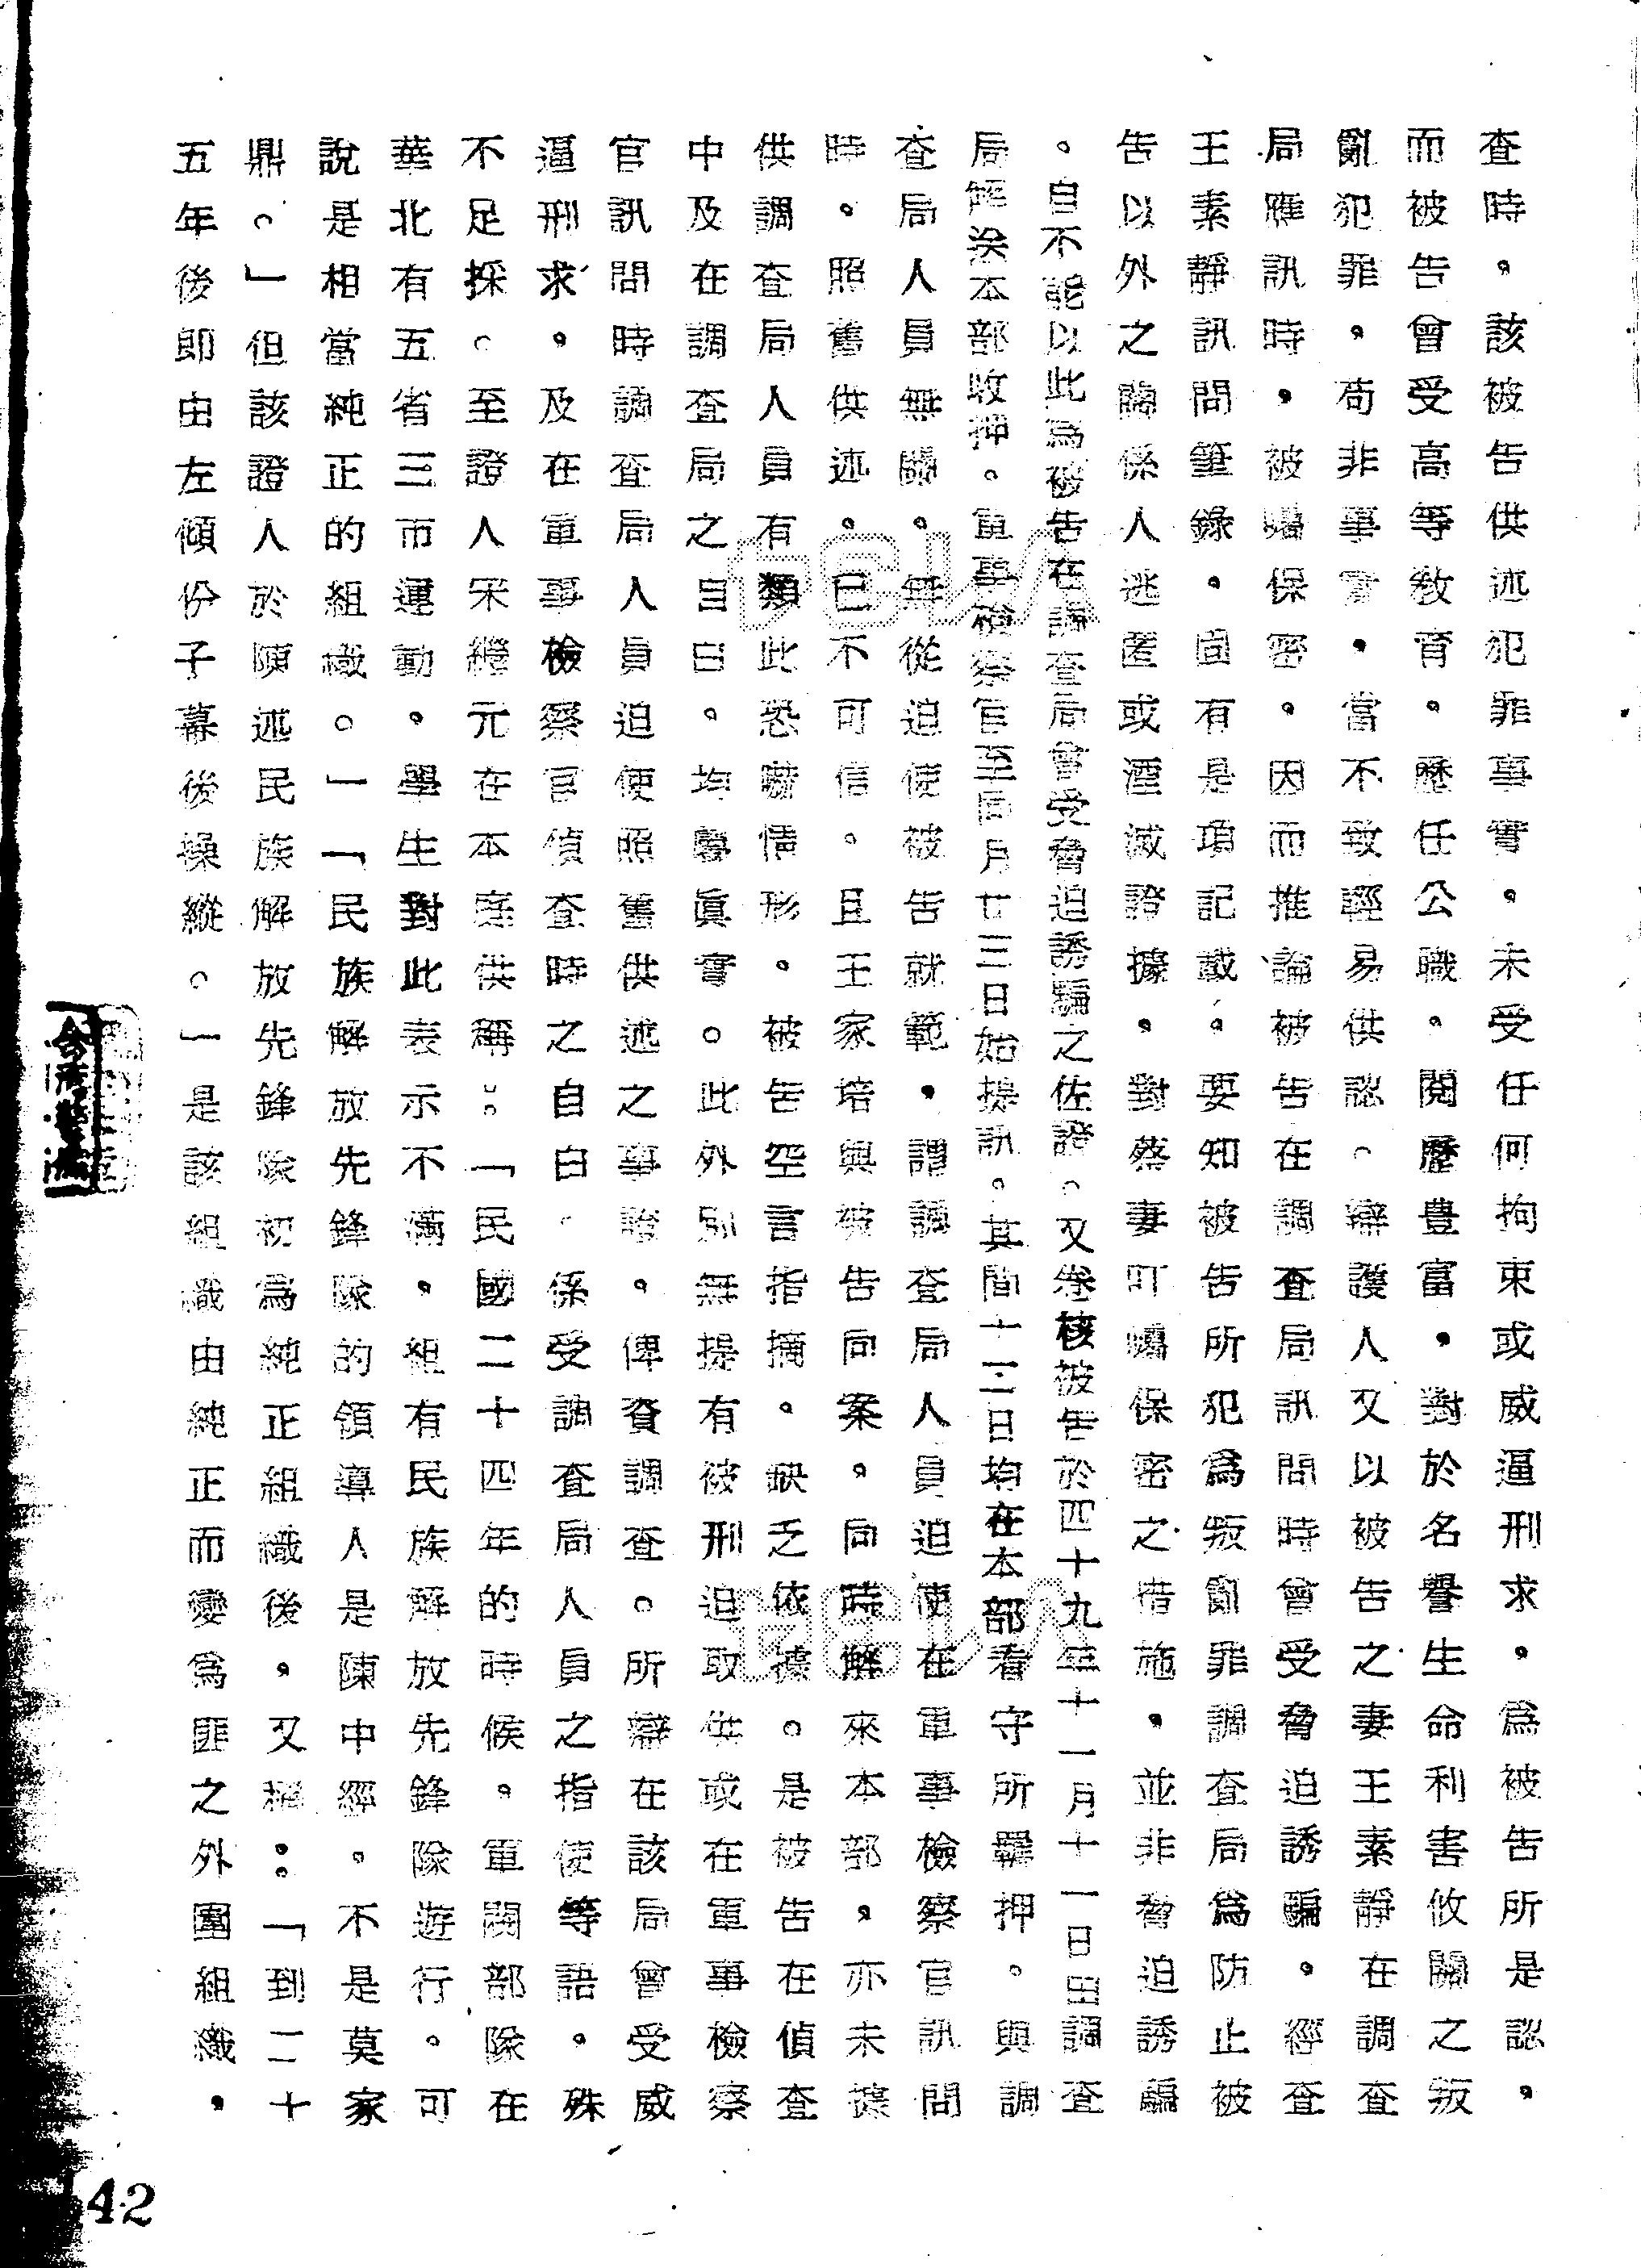 查時。該被告供述犯罪事實。未受任何拘束或威逼刑求。爲被告所是認。
而被告曾受高等教育。歷任公職。閱歷豊富。對於名譽生命利害攸關之叛
亂犯罪。苟非事實。當不致輕易供認。辯護人又以被告之妻王素靜在調查
局應訊時。被囑保密。因而推論被告在調查局訊問時曾受脅迫誘騙。經查
王素靜訊問筆錄。固有是項記載。要知被告所犯爲叛亂罪調查局爲防止被
告以外之關係人逃匿或湮滅證據。對蔡妻叮囑保密之措施。並非脅迫誘騙
。自不能以此爲被告在調查局曾受脅迫誘騙之佐證。又卷核被告於四十九年十一月十一日由調查
局解送本部收押。軍事檢察官至同月廿三日始提訊。其間十二日均在本部看守所羈押。與調
查局人員無關。無從迫使被告就範。謂調查局人員迫使在軍事檢察官訊問
時。照舊供述。已不可信。且王家培與被告同案。同時解來本部。亦未據
供調查局人員有類此恐嚇情形。被告空言指摘。缺乏依據。是被告在偵查
中及在調查局之自白。均屬眞實。此外別無提有被刑迫取供或在軍事檢察
官訊問時調查局人員迫使照舊供述之事證。俾資調查。所辯在該局曾受威
逼刑求。及在軍事檢察官偵查時之自白。係受調查局人員之指使等語。殊
不足採。至證人宋繼元在本庭供稱：「民國二十四年的時候。軍閥部隊在
華北有五省三市運動。學生對此表示不滿。組有民族解放先鋒隊遊行。可
說是相當純正的組織。」「民族解放先鋒隊的領導人是陳中經。不是莫家
鼎。」但該證人於陳述民族解放先鋒隊初爲純正組織後。又稱：「到二十
五年後即由左傾份子幕後操縱。」是該組織由純正而變爲匪之外圍組織。
42